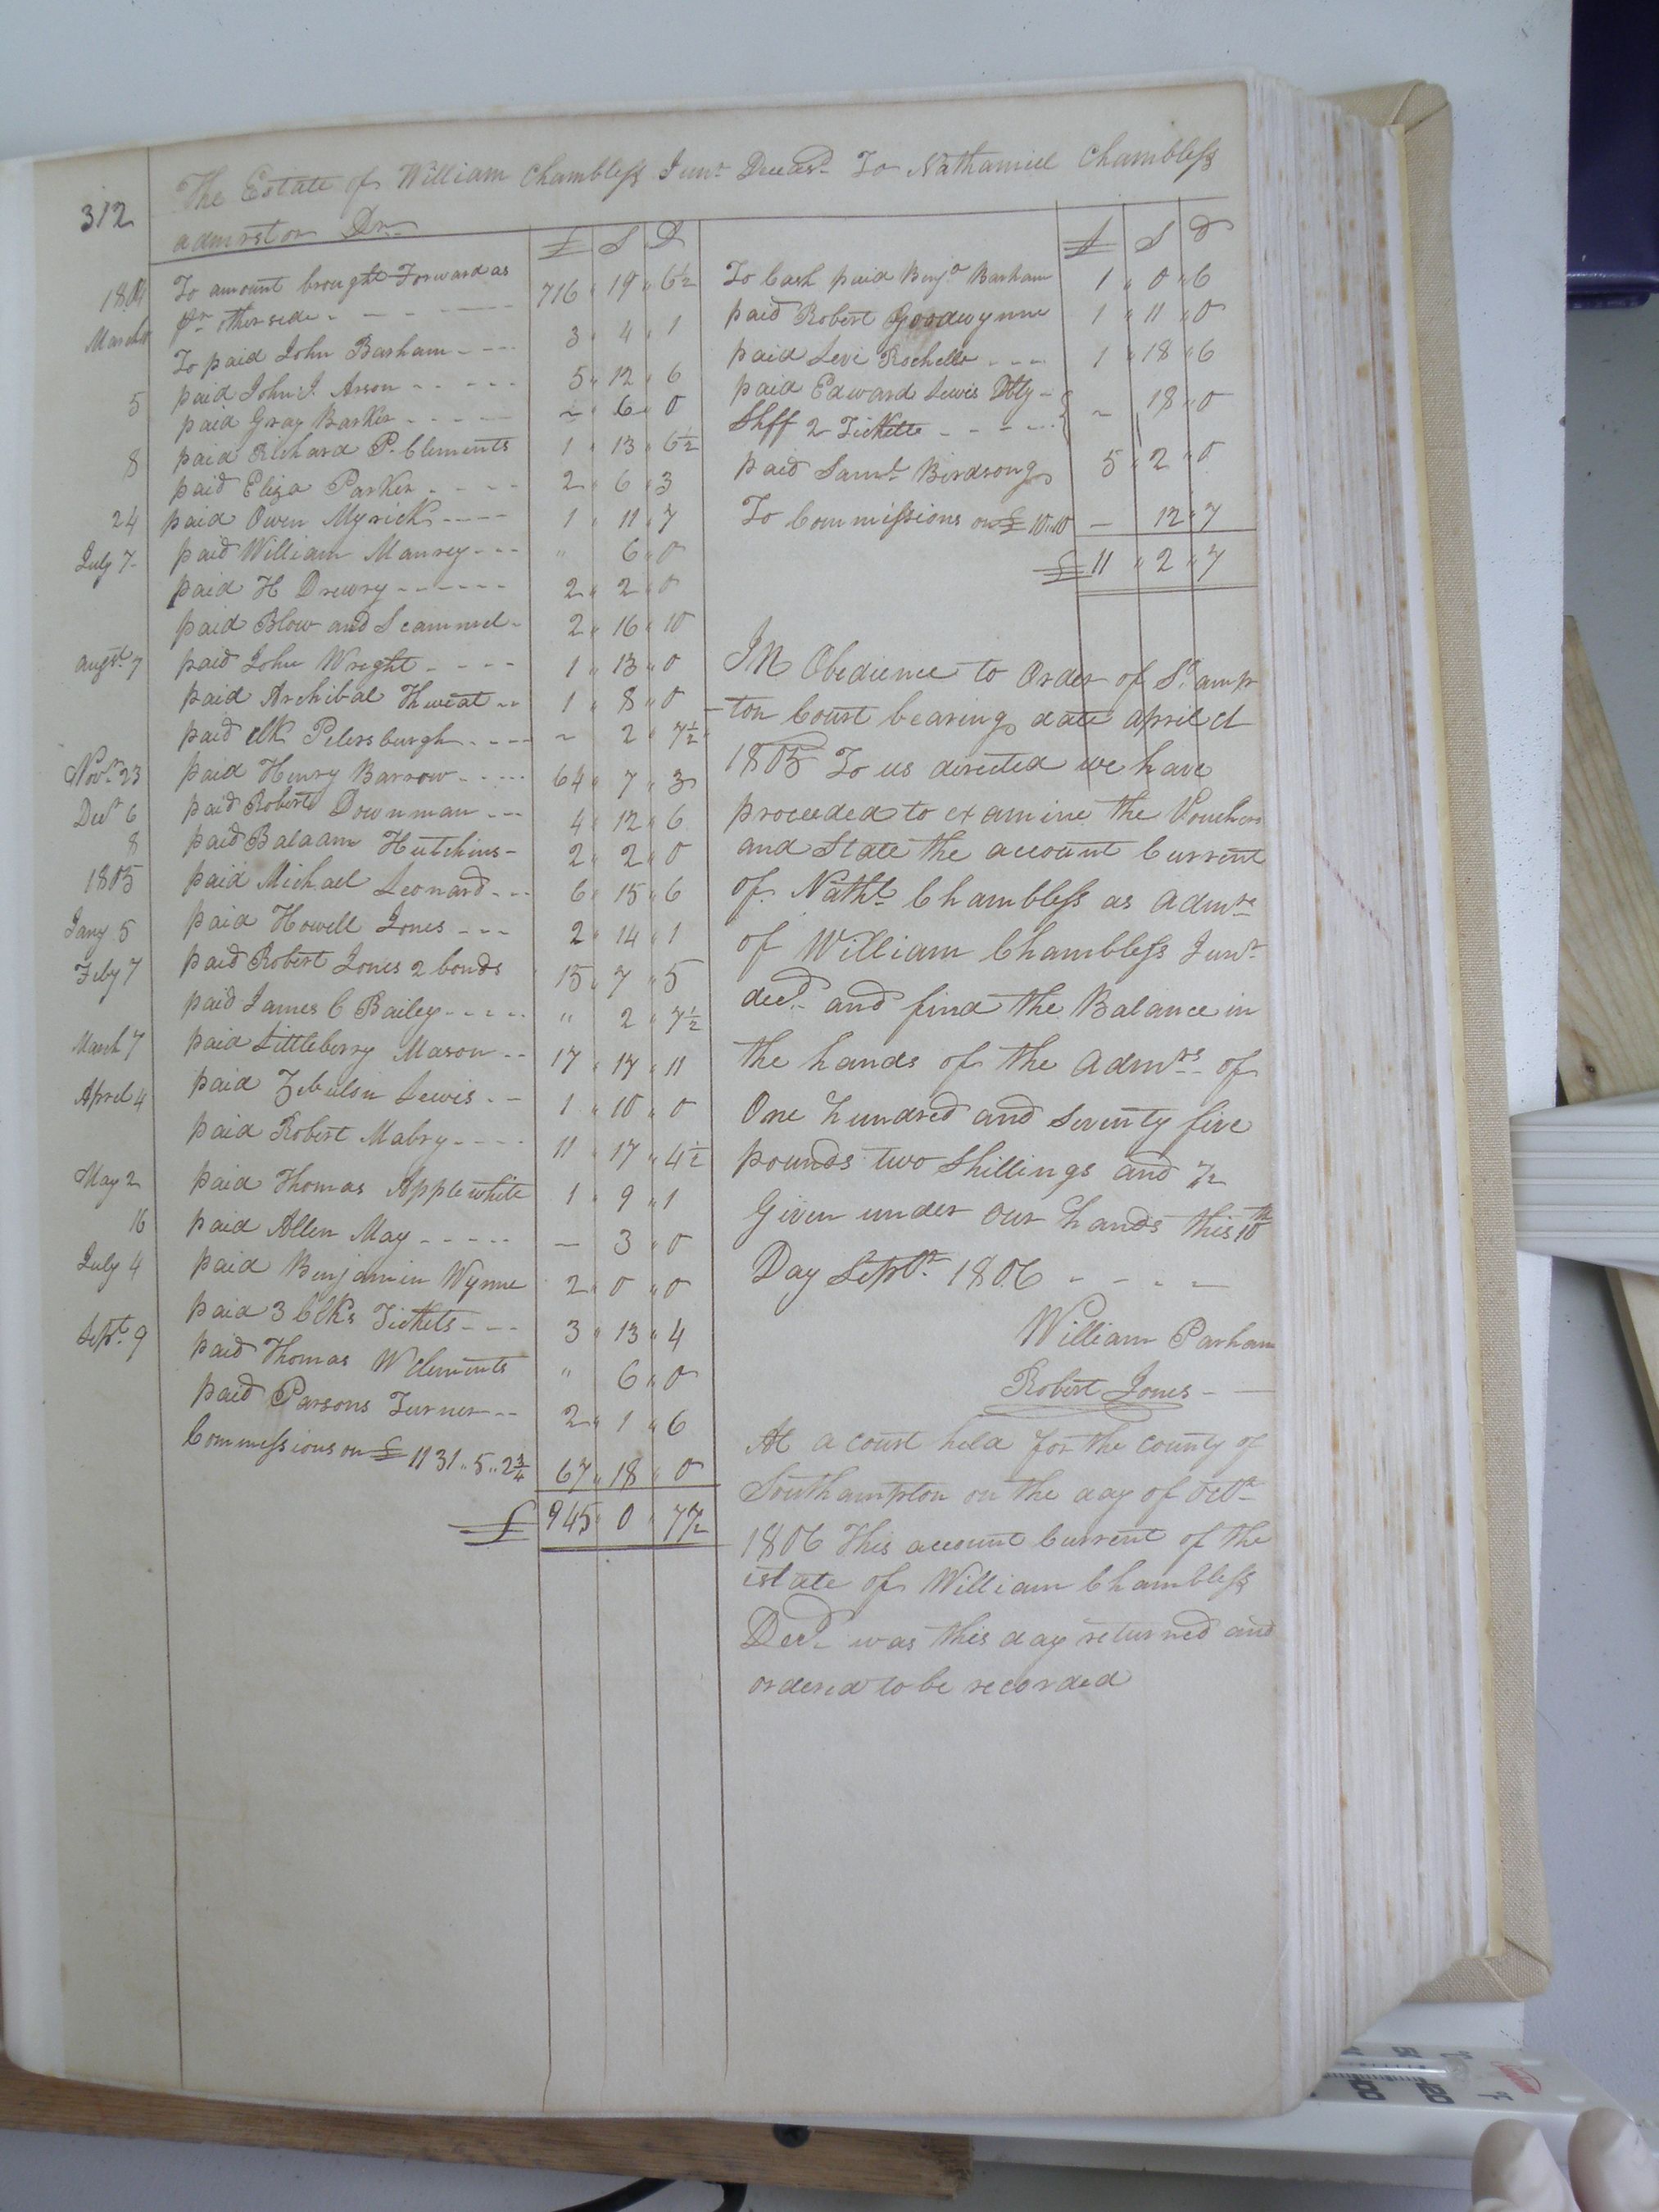 312
The Estate of William Chambless Junr. Deceasd. To Nathaniel Chambless
admirstor Dr.
£ S D
1804 To amount brought Forward as
pr. other side - - - 716 " 19 " 6½
March
To paid John Barham - - - 3 " 4 " 1
5 paid John J. Arson - - - - 5 " 12 " 6
paid Gray Barker - - - - ~ " 6 " 0
8 paid Richard P. Clements 1 " 13 " 6½
paid Eliza Parker - - - - 2 " 6 " 3
24 paid Owen Myrick - - - - 1 " 11 " 7
July 7 paid William Manrey - - - " 6 " 0
paid H Drewry - - - - - - 2 " 2 " 0
paid Blow and Scammel - 2 " 16 " 10
augst. 7 paid John Wright - - - - 1 " 13 " 0
paid Archibal Thweat - - 1 " 8 " 0
paid clk Petersburgh - - - - ~ 2 " 7½
Novr. 23 paid Henry Barrow - - - - - 64 " 7 " 3
Decr 6 paid Robert Downman - - - 4 " 12 " 6
8 paid Balaam Hutchins - 2 " 2 " 0
1805 paid Michael Leonard - - - 6 " 15 " 6
Jany 5 paid Howell Jones - - - 2 " 14 " 1
Feby 7 paid Robert Jones 2 bonds 15 " 7 " 5
paid James C Bailey - - - - - " 2 " 7½
March 7 paid Littleberry Mason - - 17 " 17 " 11
April 4 paid Zebulon Lewis - - 1 " 10 " 0
paid Robert Mabry - - - - 11 " 17 " 4½
May 2 paid Thomas Applewhite 1 " 9 " 1
16 paid Allen May - - - - - — 3 " 0
July 4 paid Benjamin Wynne 2 " 0 " 0
paid 3 Clks Tickets - - - 3 " 13 " 4
Septr. 9 paid Thomas W Clements " 6 " 0
paid Parsons Turner - - 2 " 1 " 6
Commissions on £ 1131 " 5 " 2¾ 67 " 18 " 0
£ 945 " 0 " 7½
£ S D
To Cash paid Benja Barham 1 " 0 " 6
paid Robert Goodwynne 1 " 11 " 0
paid Levi Rochelle - - - 1 " 18 " 6
paid Edward Lewis Dty -
Shff 2 Tickette - - - - - ~ 18 " 0
paid Saml. Birdsong 5 " 2 " 0
To Commissions on £ 10.10 — 12 " 7
£ 11 " 2 " 7
IN Obedience to Order of So.amp
-ton Court bearing date april Ct
1805 To us directed we have
proceeded to examine the Vouchers
and State the account Current
of Nathl. Chambless as admrs
of William Chambless Junr.
decd. and find the Balance in
the hands of the admrs. of
One hundred and Seventy five
pounds two Shillings and 7½
Given under our hands this 10th
Day Septr. 1806 - - - -
William Parham
Robert Jones - -
At a court held for the county of
Southampton on the day of Octr.
1806 This account Current of the
estate of William Chambless
Decd. was this day returned and
ordered to be recorded